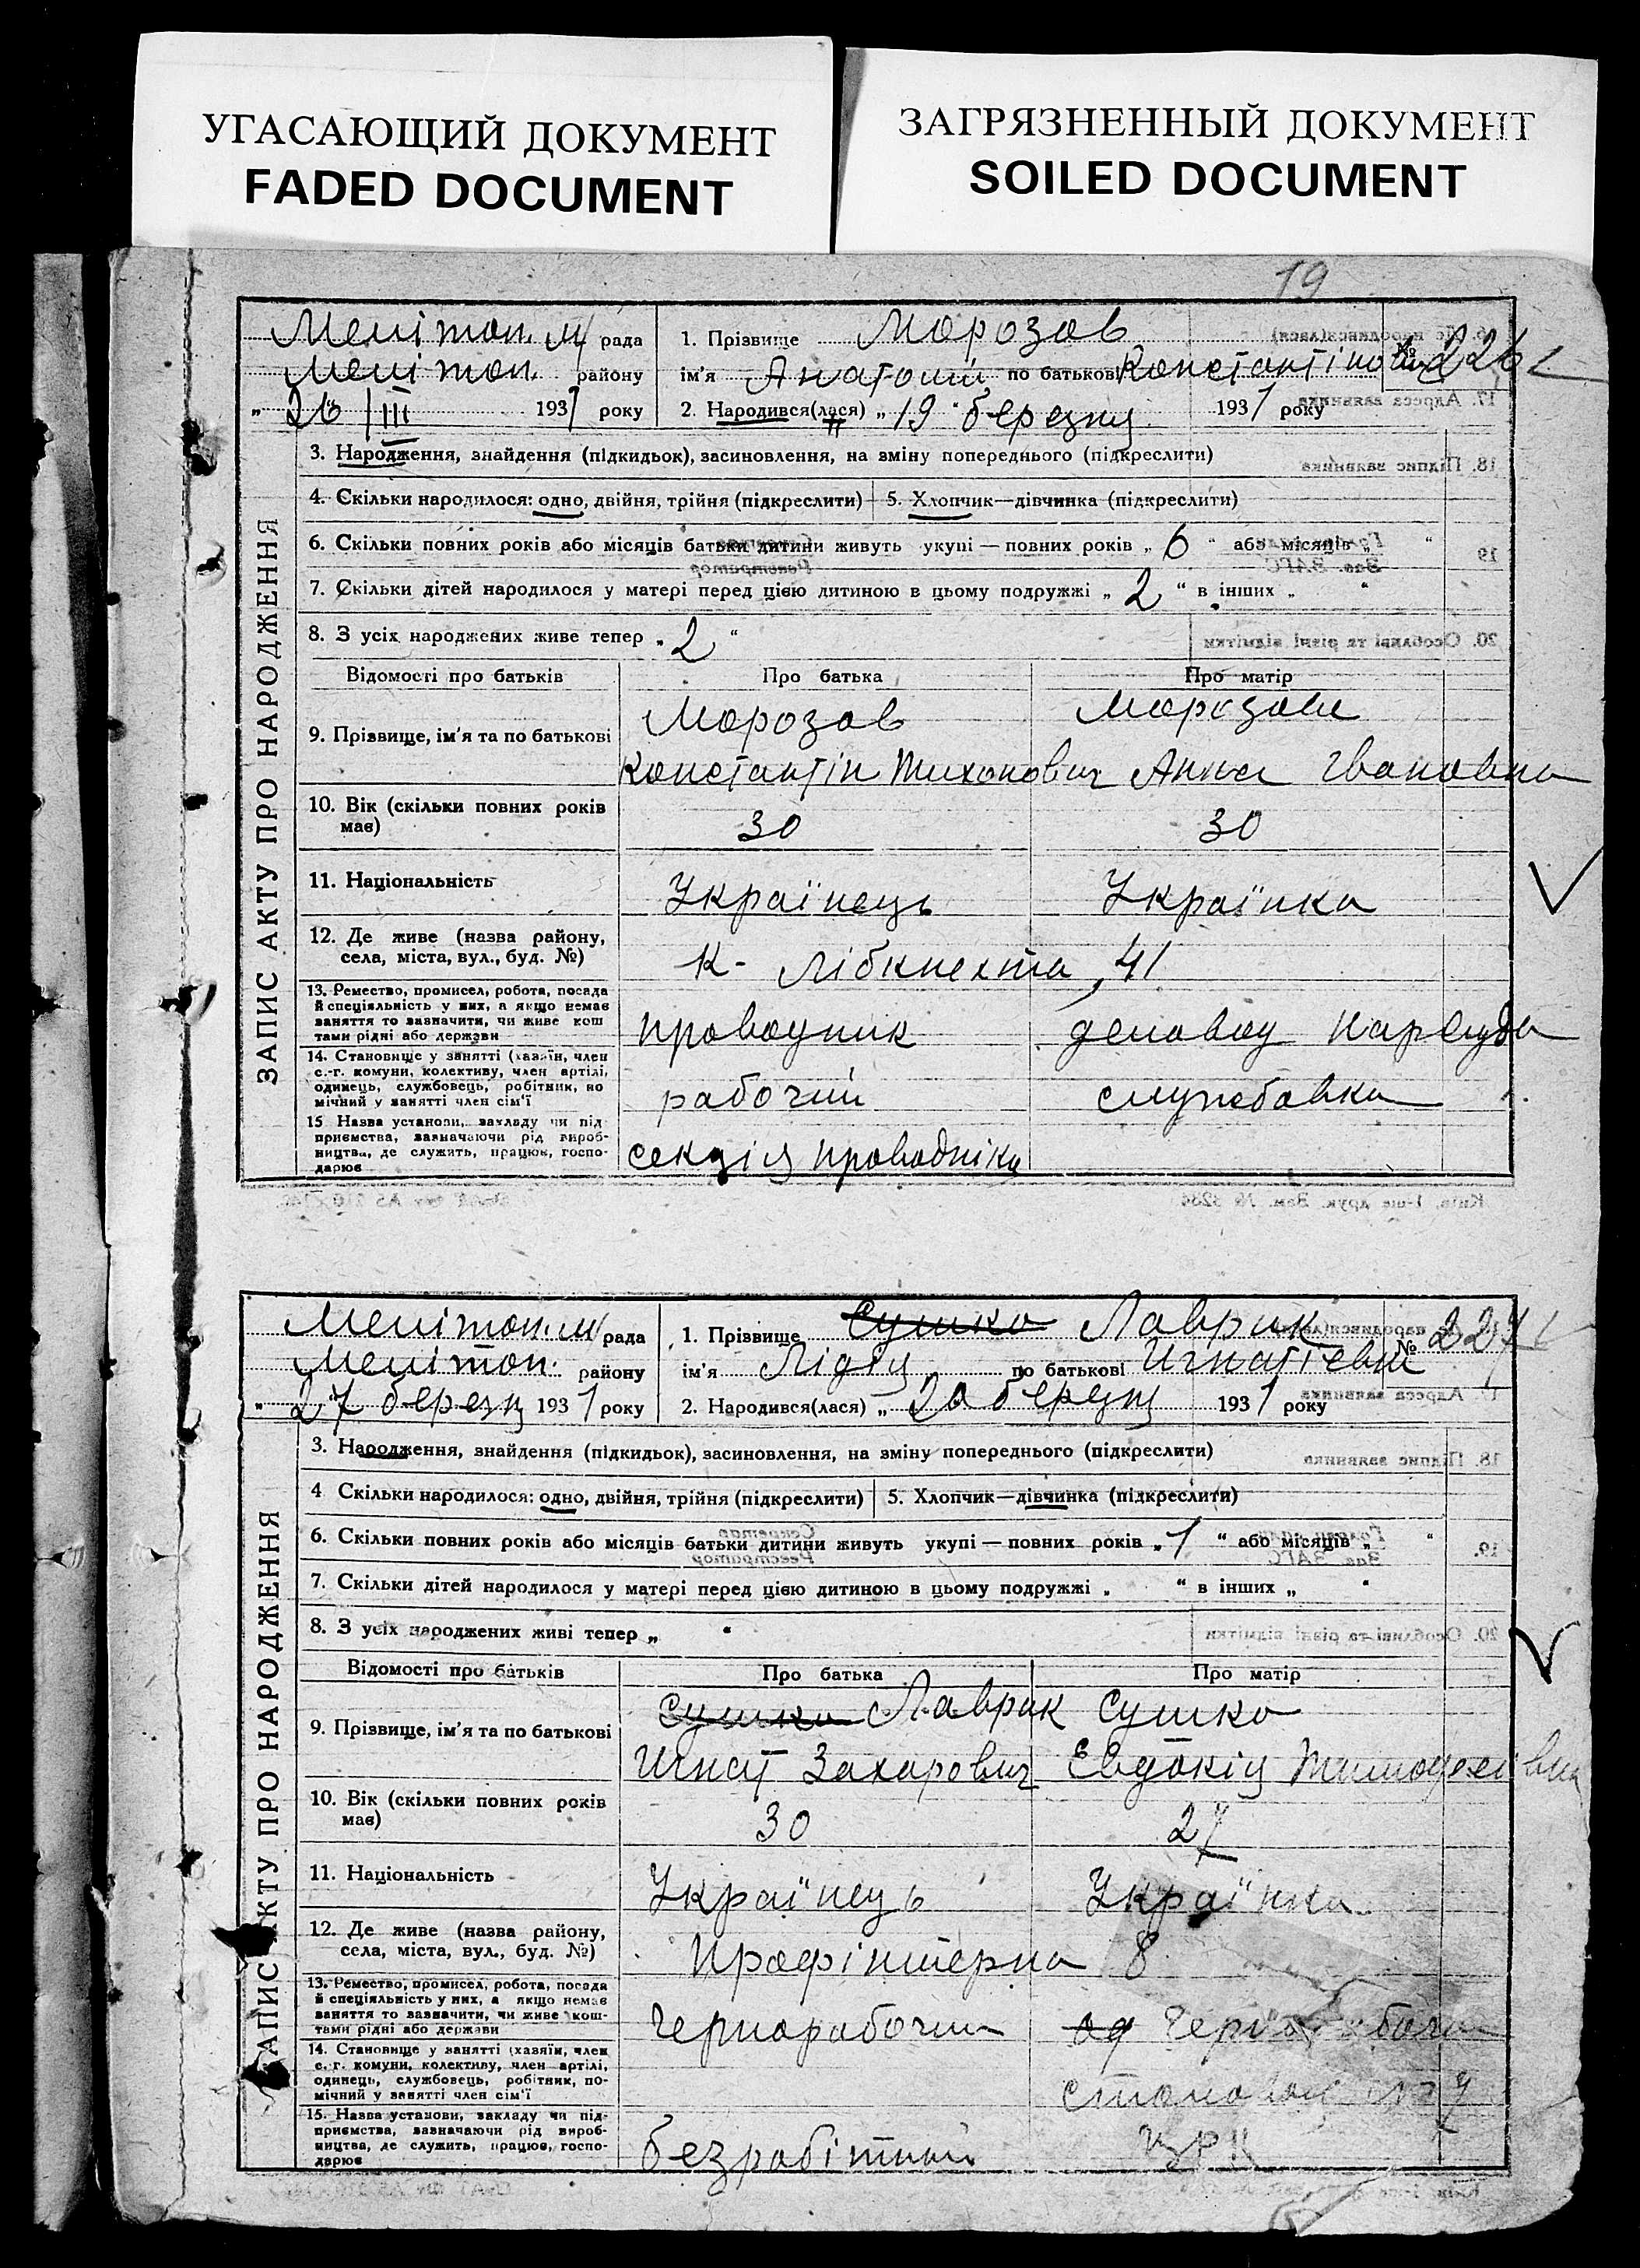 УГАСАЮЩИЙ ДОКУМЕНТ
FADED DOCUMENT
ЗАГРЯЗНЕННЫЙ ДОКУМЕНТ
SOILED DOCUMENT
19
ЗАПИС АКТУ ПРО НАРОДЖЕННЯ
Мелітоп. м/ рада
Мелітоп. району
„26/III 1931 року
1. Прізвище Морозов
№ 226
ім'я Анатолій по батькові Константінович
2. Народився(лася) „19" березня 1931 року
3. Народження, знайдення (підкидьок), засиновлення, на зміну попереднього (підкреслити)
4. Скільки народилося: одно, двійня, трійня (підкреслити) 5. Хлопчик—дівчинка (підкреслити)
6. Скільки повних років або місяців батьки дитини живуть укупі — повних років „6" або місяців „ "
7. Скільки дітей народилося у матері перед цією дитиною в цьому подружжі „2" в інших „ "
8. З усіх народжених живе тепер „2"
Відомості про батьків Про батька Про матір
9. Прізвище, ім'я та по батькові Морозов Морозова
Константін Тихонович Анна Івановна
10. Вік (скільки повних років має) 30 30
11. Національність Українець Українка
12. Де живе (назва району, села, міста, вул., буд. №) К- Лібкнехта, 41
13. Ремество, промисел, робота, посада й спеціяльність у них, а якщо немає заняття то зазначити, чи живе кош тами рідні або держави проводник деловод Нарсуда
14. Становище у занятті (хазяїн, член с.-г. комуни, колективу, член артілі, одинець, службовець, робітник, по мічний у занятті член сім'ї рабочий службовка
15 Назва установи, закладу чи під- приємства, зазначаючи рід вироб- ництва, де служить, працює, госпо- дарює секція проводніків
Київ, 1-ше друк. Зам. №
ЗАПИС АКТУ ПРО НАРОДЖЕННЯ
Мелітоп. м/ рада
Мелітоп. району
„27 березня 1931 року
1. Прізвище Сушко Лаврик
№ 227
ім'я Лідія по батькові Игнатієвна
2. Народився(лася) „20 березня 1931 року
3. Народження, знайдення (підкидьок), засиновлення, на зміну попереднього (підкреслити)
4 Скільки народилося: одно, двійня, трійня (підкреслити) 5. Хлопчик—дівчинка (підкреслити)
6. Скільки повних років або місяців батьки дитини живуть укупі — повних років „1" або місяців „ "
7. Скільки дітей народилося у матері перед цією дитиною в цьому подружжі „ " в інших „ "
8. З усіх народжених живі тепер „ "
Відомості про батьків Про батька Про матір
9. Прізвище, ім'я та по батькові Сушко Лаврик Сушко
Игнат Захарович Евдокія Тимофеєївна
10. Вік (скільки повних років має) 30 27
11. Національність Українець Українка
12. Де живе (назва району, села, міста, вул., буд. №) Профінтерна 8
13. Ремество, промисел, робота, посада й спеціяльність у них, а якщо немає заняття то зазначити, чи живе кош- тами рідні або держави Чернорабочий
14. Становище у занятті (хазяїн, член с.-г. комуни, колективу, член артілі, одинець, службовець, робітник, по- мічний у занятті член сім'ї
15. Назва установи, закладу чи під- приємства, зазначаючи рід вироб- ництва, де служить, працює, госпо- дарює безработний ЦРК